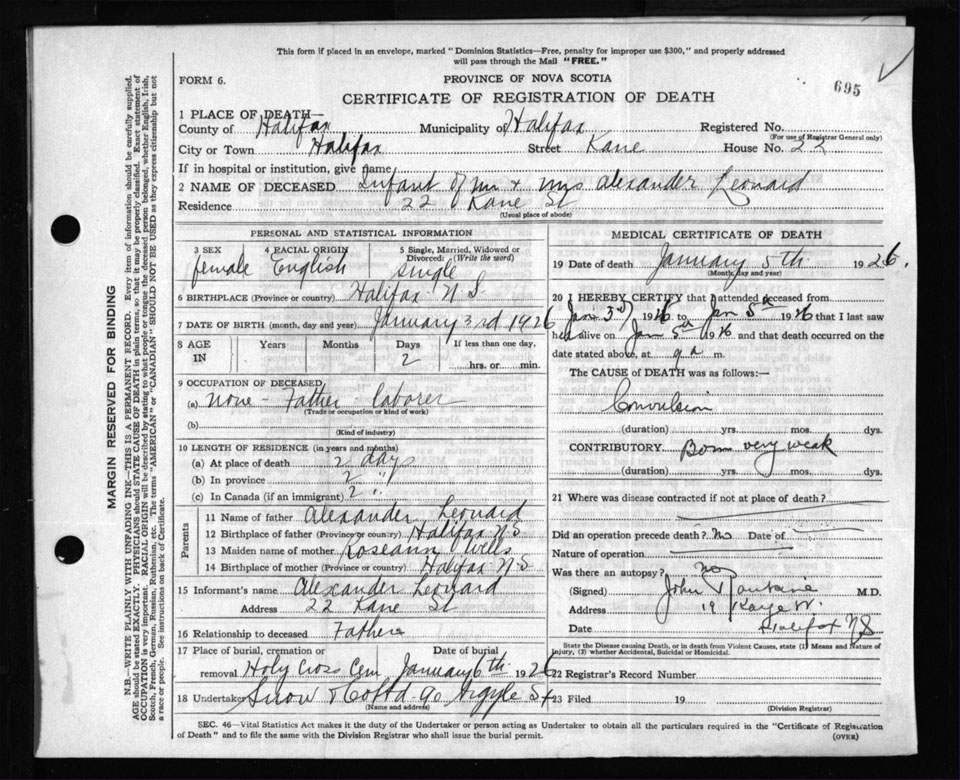 This form if placed in an envelope, marked "Dominion Statistics—Free, penalty for improper use $300," and properly addressed
will pass through the Mail "FREE."
FORM 6.
PROVINCE OF NOVA SCOTIA
695
CERTIFICATE OF REGISTRATION OF DEATH
1 PLACE OF DEATH—
County of Halifax Municipality of Halifax Registered No.
(For use of Registrar General only)
City or Town Halifax Street Kane House No. 22
If in hospital or institution, give name
2 NAME OF DECEASED Infant of Mr + Mrs Alexander Leonard
Residence 22 Kane St
(Usual place of abode)
PERSONAL AND STATISTICAL INFORMATION
3 SEX 4 RACIAL ORIGIN 5 Single, Married, Widowed or
Divorced: (Write the word)
female English single
6 BIRTHPLACE (Province or country) Halifax N.S
7 DATE OF BIRTH (month, day and year) January 3rd 1926
8 AGE IN Years Months Days If less than one day,
2 hrs. or min.
9 OCCUPATION OF DECEASED
(a) None - Father - laborer
(Trade or occupation or kind of work)
(b)
(Kind of industry)
10 LENGTH OF RESIDENCE (in years and months)
(a) At place of death 2 days
(b) In province 2 "
(c) In Canada (if an immigrant) 2 "
Parents
11 Name of father Alexander Leonard
12 Birthplace of father (Province or country) Halifax N.S
13 Maiden name of mother Roseann Wells
14 Birthplace of mother (Province or country) Halifax N-S
15 Informant's name Alexander Leonard
Address 22 Kane St
16 Relationship to deceased Father
17 Place of burial, cremation or Date of burial
removal Holy Cross Cem January 6th 1926
18 Undertaker Snow & Co Ltd 90 Argyle St
(Name and address)
MEDICAL CERTIFICATE OF DEATH
19 Date of death January 5th 1926.
(Month, day and year)
20 I HEREBY CERTIFY that I attended deceased from
Jan 3rd, 1926 to Jan 5th 1926 that I last saw
her alive on Jan 5th 1926 and that death occurred on the
date stated above, at 9 a m.
The CAUSE of DEATH was as follows:—
Convulsion
(duration) yrs. mos. dys.
CONTRIBUTORY Born very weak
(duration) yrs. mos. dys.
21 Where was disease contracted if not at place of death?
Did an operation precede death? No Date of
Nature of operation
Was there an autopsy? no
(Signed) John M.D.
Address 19 Kaye St.
Date Halifax NS
State the Disease causing Death, or in death from Violent Causes, state (1) Means and Nature of
Injury, (2) whether Accidental, Suicidal or Homicidal.
22 Registrar's Record Number
23 Filed 19
(Division Registrar)
SEC. 46—Vital Statistics Act makes it the duty of the Undertaker or person acting as Undertaker to obtain all the particulars required in the "Certificate of Registration
of Death" and to file the same with the Division Registrar who shall issue the burial permit.
(OVER)
MARGIN RESERVED FOR BINDING
N.B.—WRITE PLAINLY WITH UNFADING INK—THIS IS A PERMANENT RECORD. Every item of information should be carefully supplied.
AGE should be stated EXACTLY. PHYSICIANS should STATE CAUSE OF DEATH in plain terms, so that it may be properly classified. Exact statement of
OCCUPATION is very important. RACIAL ORIGIN will be described by stating to what people or tongue the deceased person belonged, whether English, Irish,
Scotch, French, German, Russian, Ruthenian, etc. The terms "AMERICAN" or "CANADIAN" SHOULD NOT BE USED as they express citizenship but not
a race or people. See instructions on back of Certificate.